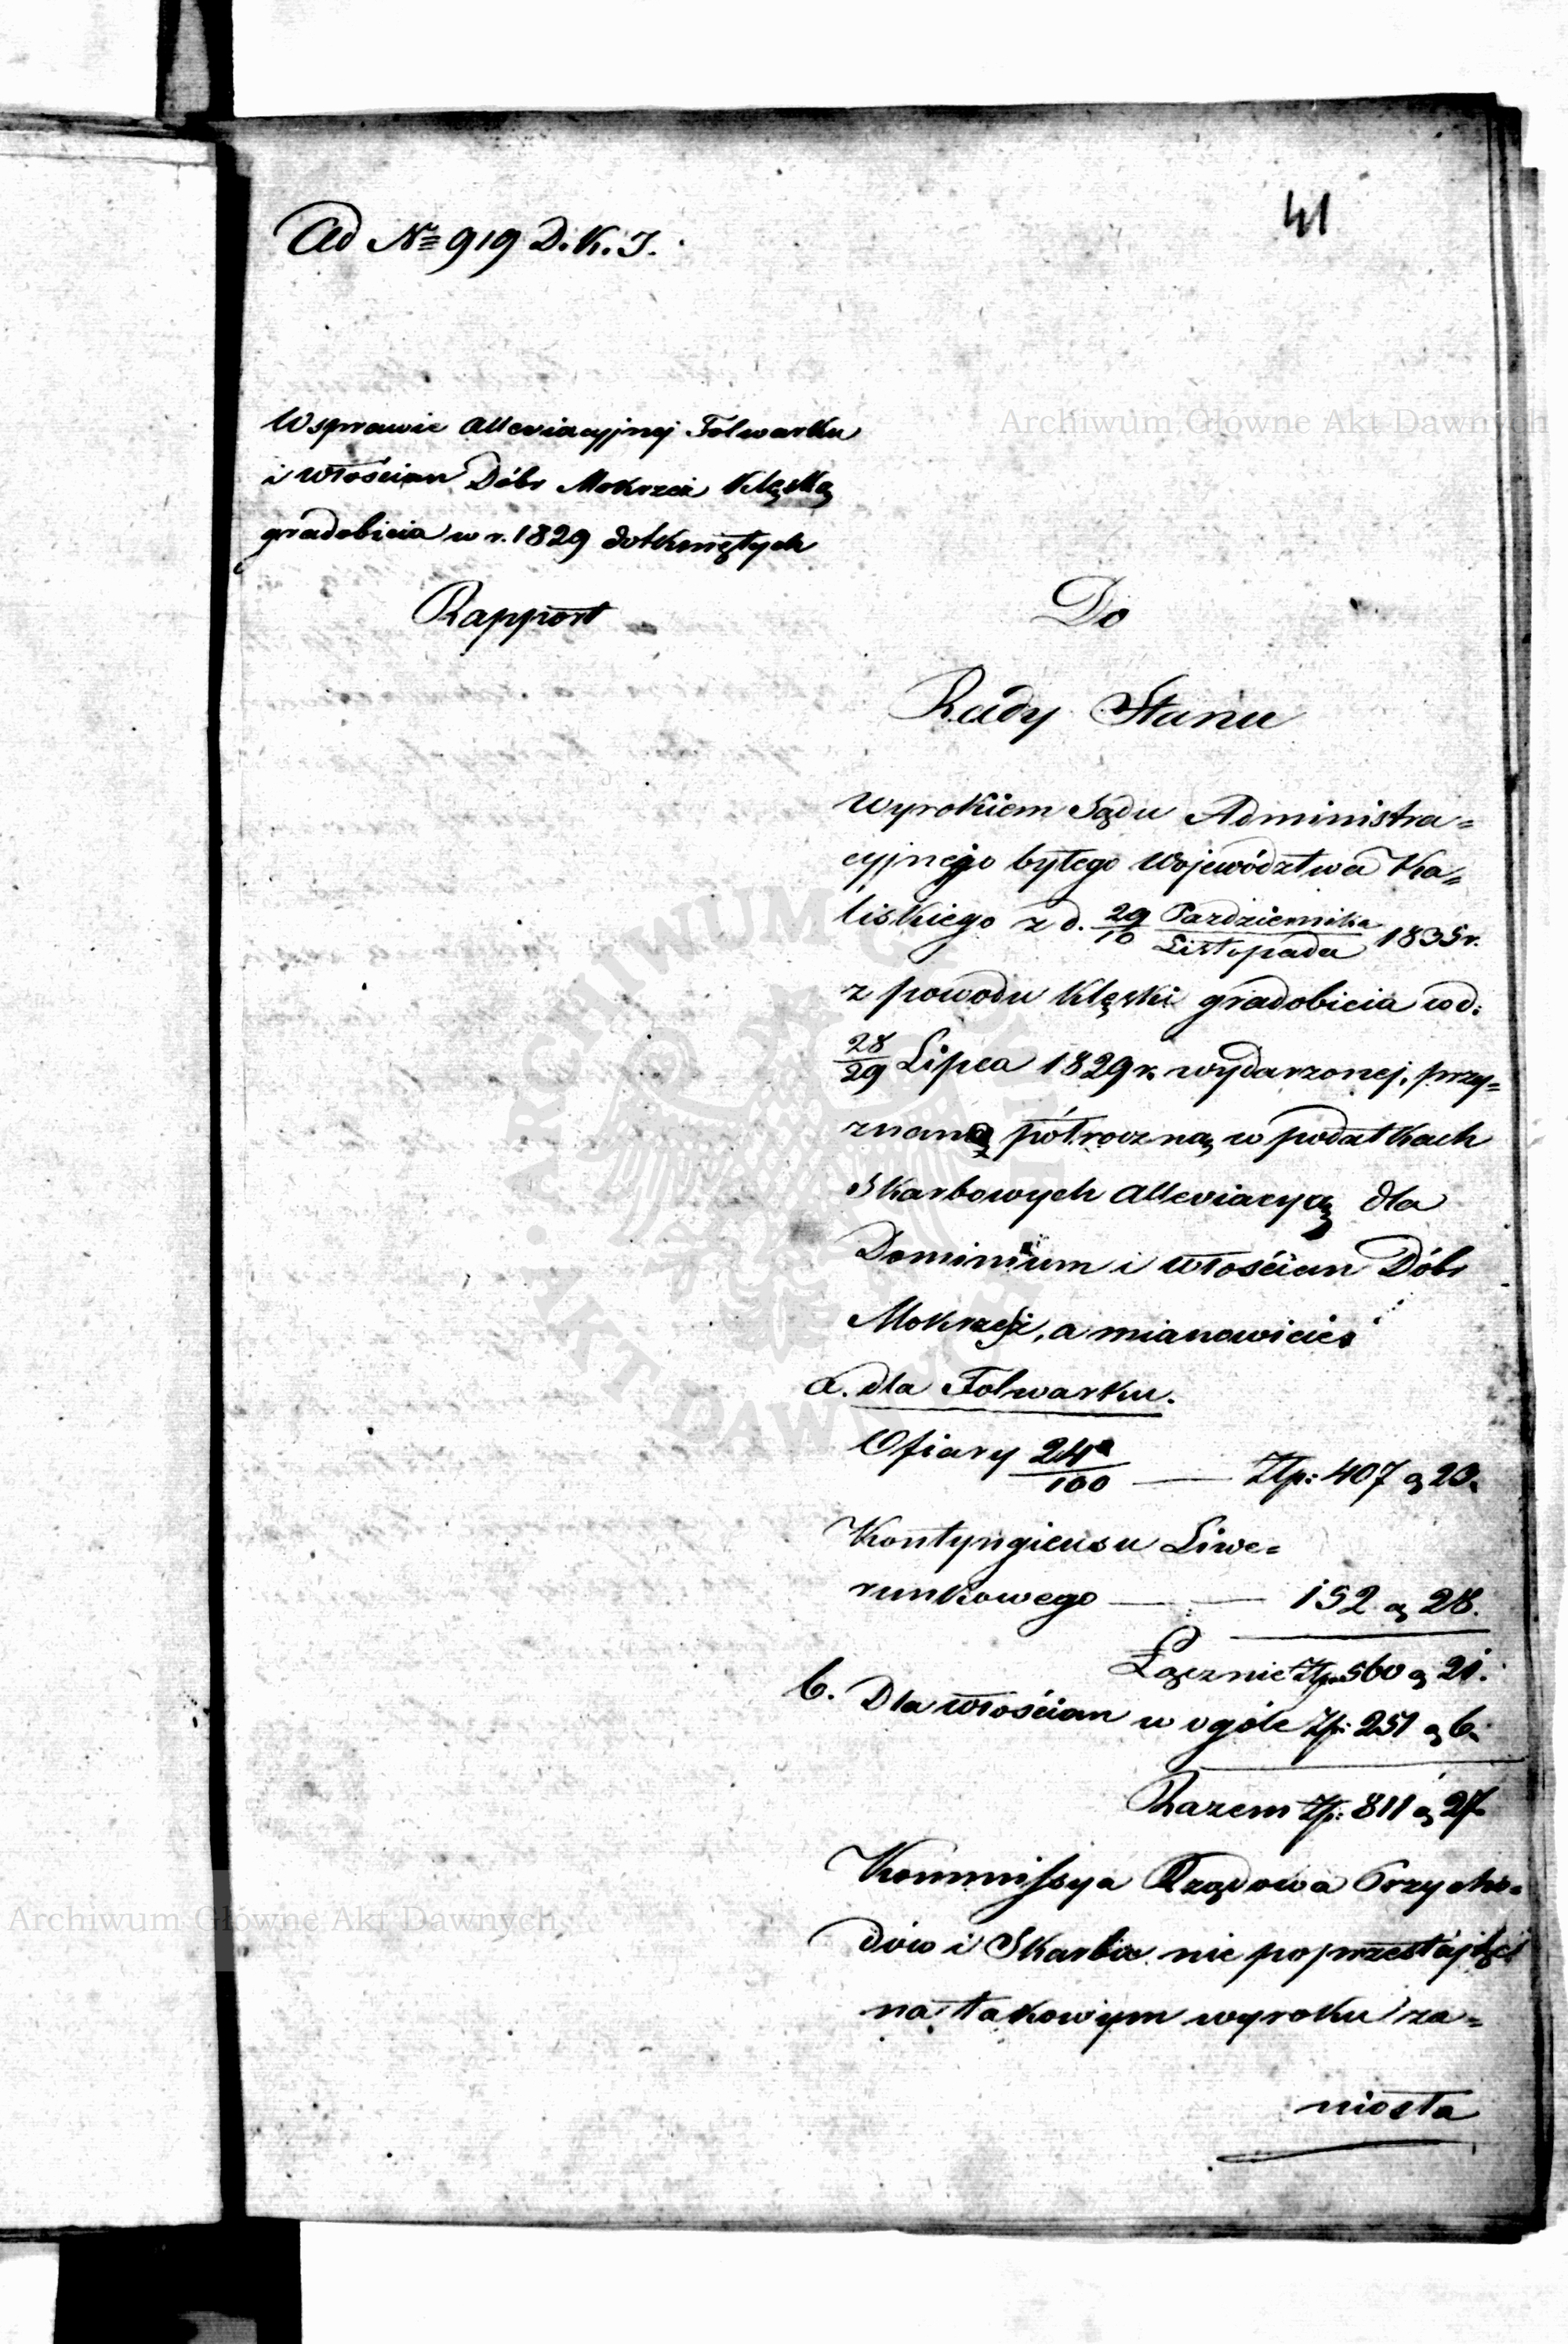 41
Ad № 919 D. K. J.
W sprawie alleviacyjnej Folwarku
i włościan Dóbr Mokrzesz klęską
gradobicia w r. 1829 dotkniętych
Rapport
Do
Rady Stanu
Wyrokiem Sądu Administra=
cyjnego byłego Województwa Ka=
liskiego z d. 29/10 Pazdziernika/Listopada 1835 r.
z powodu klęski gradobicia w d:
28/29 Lipca 1829 r. wydarzonej, przy=
znaną półroczną w podatkach
Skarbowych alleviacyą dla
Dominium i włościan Dóbr
a mianowicie:
a. dla Folwarku.
Ofiary 24/100 — Złp: 407 g 23.
Kontyngiensu Liwe=
runkowego — — 152 g 28.
Łącznie Złp. 560 g 21.
b. Dla włościan w ogóle Złp: 251 g 6.
Razem Złp: 811 g 27.
Kommissya Rządowa Przycho=
dów i Skarbu nie poprzestając
na takowym wyroku za=
niosła
Archiwum Główne Akt Dawnych
Archiwum Główne Akt Dawnych
ARCHIWUM GŁÓWNE
AKT DAWNYCH